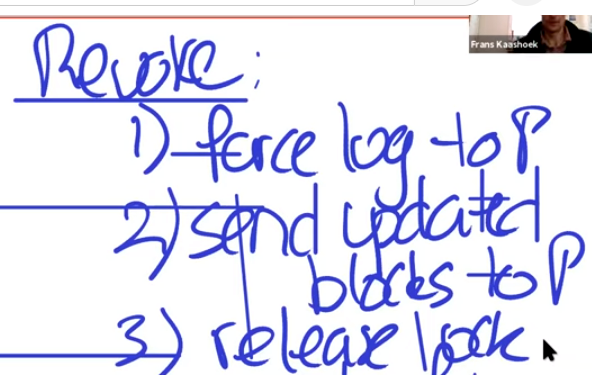 Frans Kaashoek
Revoke:
1) force log to P
2) send updated
blocks to P
3) release lock